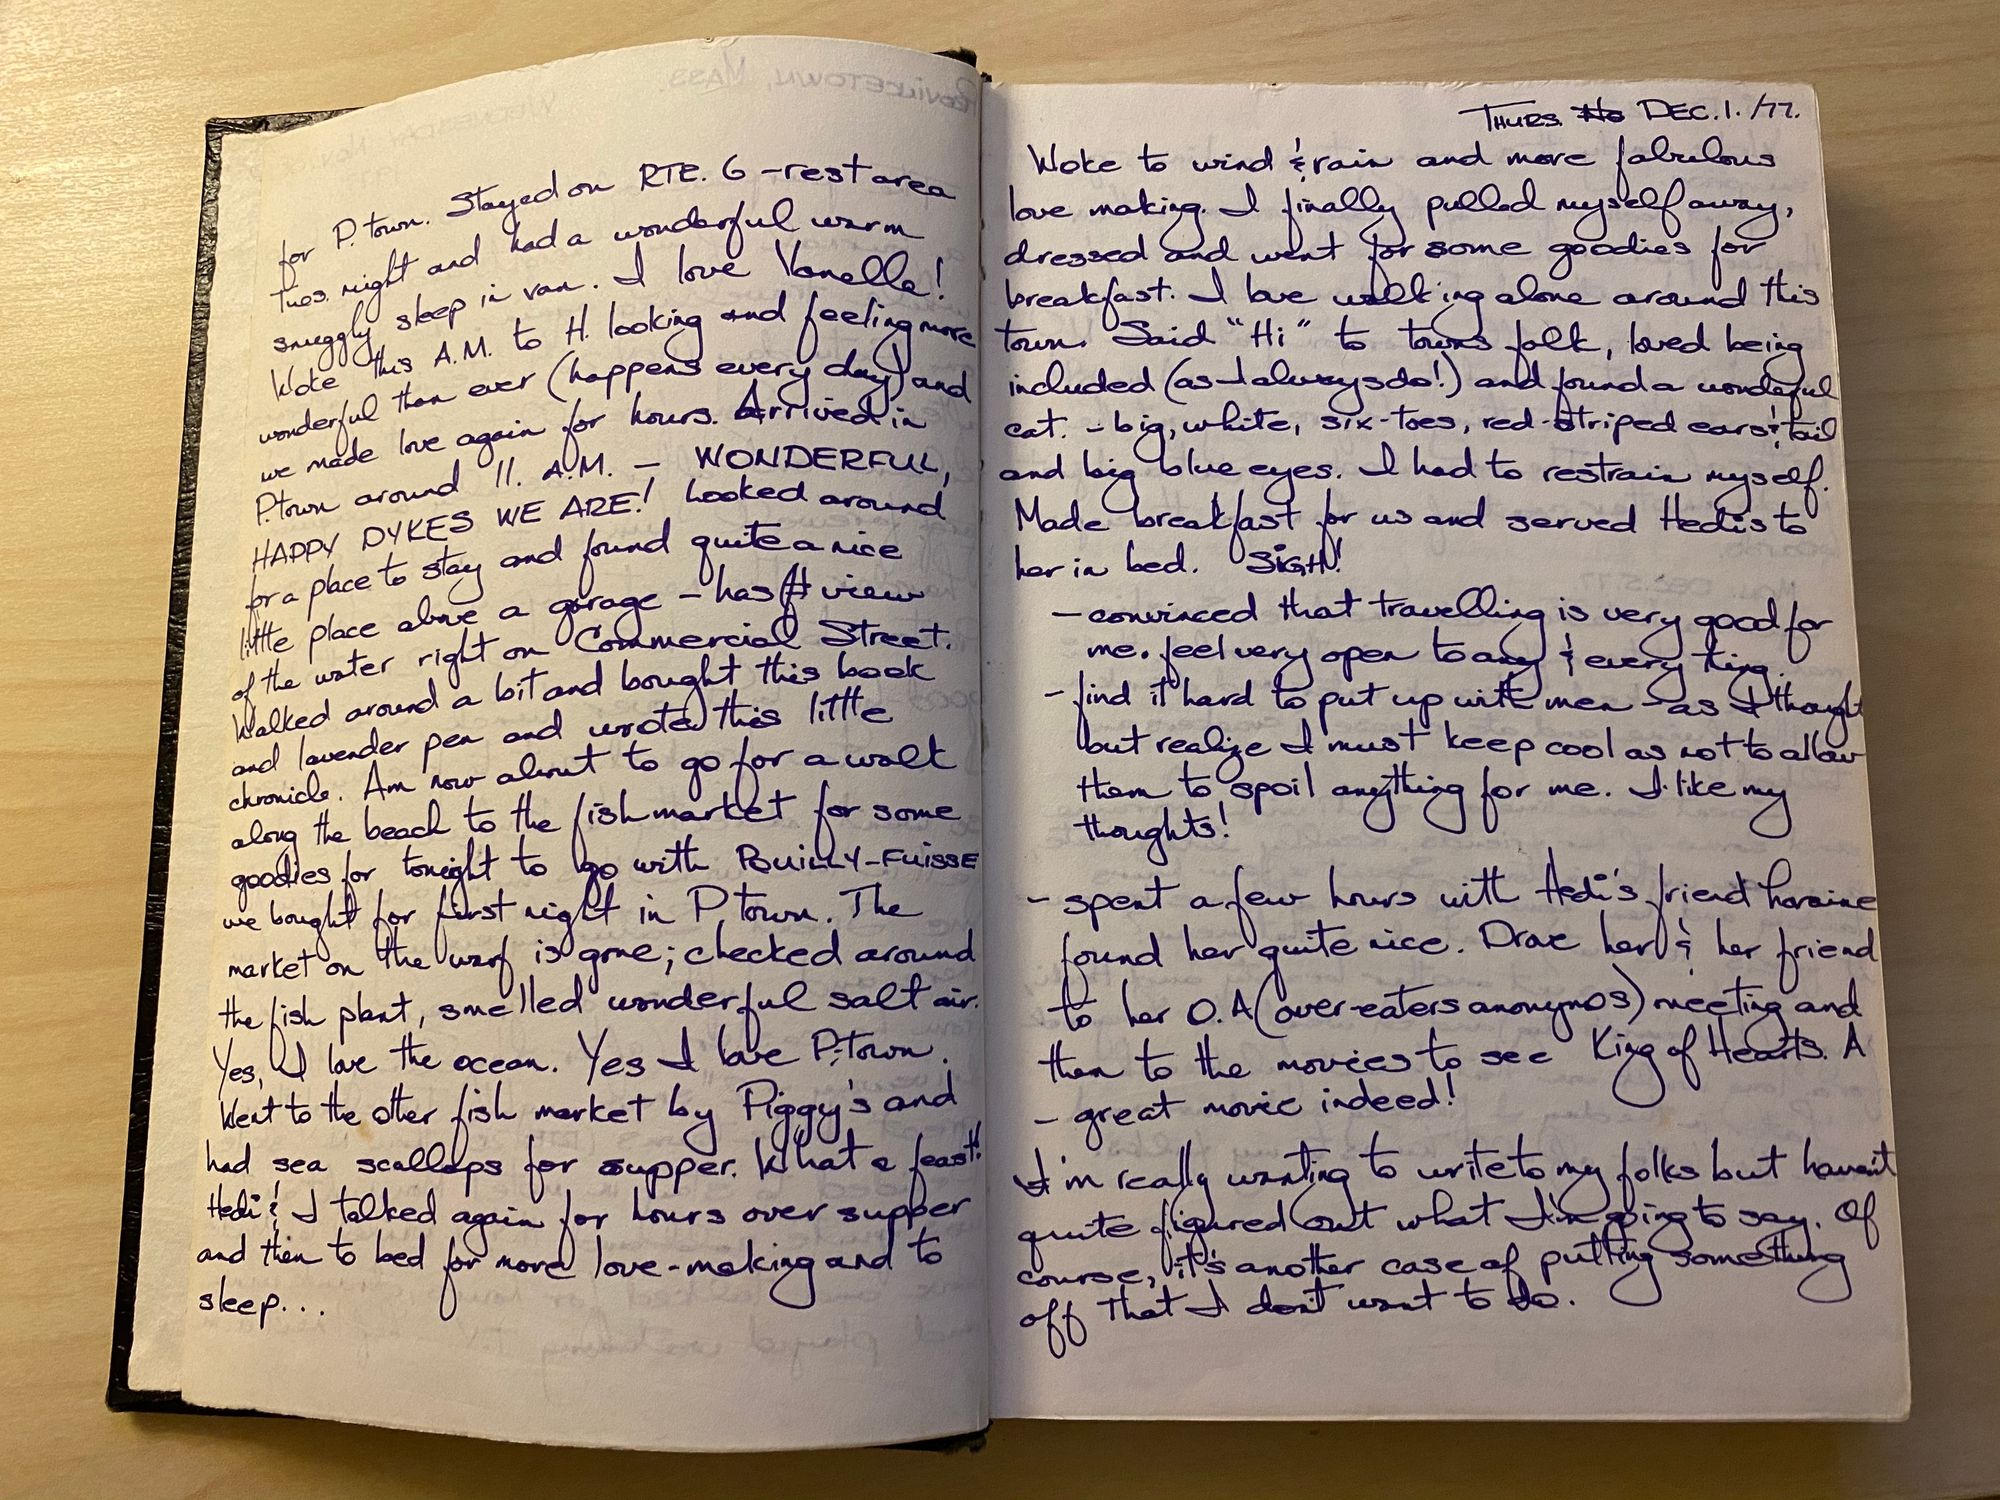 for P.town. Stayed on RTE. 6 - rest area
Tues. night and had a wonderful warm
snuggly sleep in van. I love Vanella!
Woke this A.M. to H. looking and feeling more
wonderful than ever (happens every day) and
we made love again for hours. Arrived in
P.town around 11. A.M. - WONDERFUL,
HAPPY DYKES WE ARE! Looked around
for a place to stay and found quite a nice
little place above a garage - has view
of the water right on Commercial Street.
Walked around a bit and bought this book
and lavender pen and wrote this little
chronicle. Am now about to go for a walk
along the beach to the fish market for some
goodies for tonight to go with POUILLY-FUISSE
we bought for first night in P.town. The
market on the warf is gone; checked around
the fish plant, smelled wonderful salt air.
Yes, I love the ocean. Yes I love P.town.
Went to the other fish market by Piggy's and
had sea scallops for supper. What a feast!
Hedi & I talked again for hours over supper
and then to bed for more love-making and to
sleep...
THURS. DEC. 1. /77.
Woke to wind & rain and more fabulous
love making. I finally pulled myself away,
dressed and went for some goodies for
breakfast. I love walking alone around this
town. Said "Hi" to towns folk, loved being
included (as I always do!) and found a wonderful
cat. - big, white, six-toes, red-striped ears & tail
and big blue eyes. I had to restrain myself.
Made breakfast for us and served Hedi's to
her in bed. SIGH!
- convinced that travelling is very good for
me. feel very open to any & every thing.
- find it hard to put up with men - as I thought
but realize I must keep cool as not to allow
them to spoil anything for me. I like my
thoughts!
- spent a few hours with Hedi's friend Loraine
found her quite nice. Drove her & her friend
to her O.A (over-eaters anonymos) meeting and
then to the movies to see King of Hearts. A
- great movie indeed!
I'm really wanting to write to my folks but haven't
quite figured out what I'm going to say. Of
course, it's another case of putting something
off that I don't want to do.